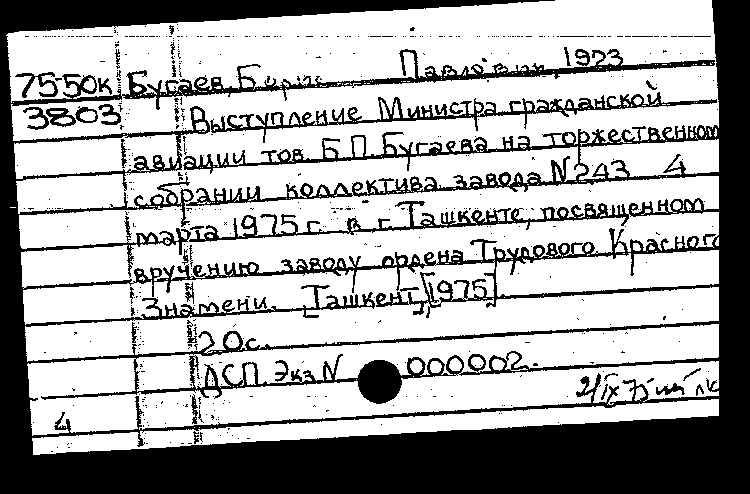 75-50к Бугаев, Борис Павлович, 1923
3803 Выступление Министра гражданской
авиации тов. Б.П. Бугаева на торжественном
собрании коллектива завода N243 4
марта 1975 г. в г. Ташкенте, посвященном
вручению заводу ордена Трудового Красного
Знамени. [Ташкент], [1975].
20с.
ДСП. Экз. N 000002.
2/IX 75
4